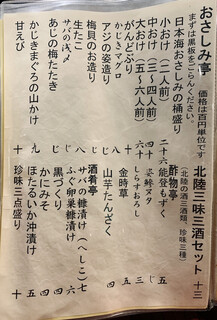 おさしみ亭
まずは黒板をごらんください。
価格は百円単位です
日本海おさしみの桶盛り
小おけ(二人前) 二十六
中おけ(三〜四人前) 四十
大おけ(五〜六人前)
がんどぶり
かじきマグロ
アジの姿造り
梅貝のお造り
生たこ
サバの浅〆
あじの梅たたき
かじきまぐろの山かけ 九
甘えび 十
北陸三昧三酒セット 十三
(北陸の酒三酒類、珍味三種)
酢物亭
能登もずく 五
姿鮮ヌタ
しらすおろし
金時草
山芋たんざく
酒肴亭
サバの糠漬け(へしこ) 七
ふぐ卵巣糠漬け
黒づくり
かにみそ
ほたるいか沖漬け
珍味三点盛り 十